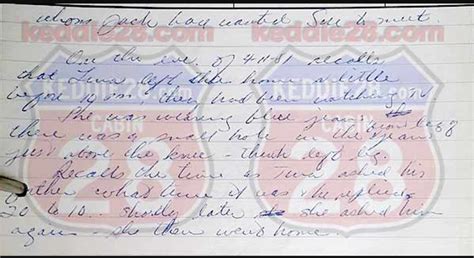 whom Jack had wanted Sue to meet.
On the eve. of 4-11-81 recalls
that Tina left their home a little
before 10 pm; they had been watching TV
She was wearing blue jeans
there was a small hole in the jeans
just above the knee - think left leg.
Recalls the time as Tina asked his
brother what time it was - he replied
20 to 10... shortly later she asked him
again - she then went home.
keddie28.com
keddie28.com
KEDDIE28.com
CABIN
28
KEDDIE28.com
CABIN
28